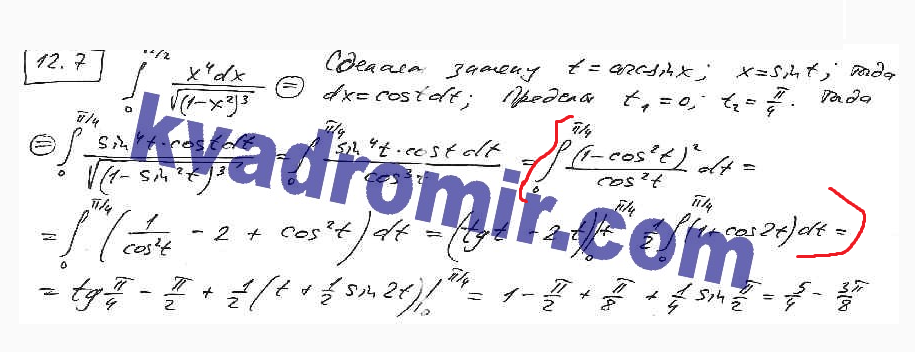 12.7 ∫₀^{√2/2} x⁴dx / √(1-x²)³ = Сделаем замену t = arcsinx; x = sint; тогда
dx = costdt; Пределы t₁ = 0; t₂ = π/4. Тогда
= ∫₀^{π/4} sin⁴t·costdt / √(1-sin²t)³ = ∫₀^{π/4} sin⁴t·cost dt / cos³t = ∫₀^{π/4} (1-cos²t)² / cos²t dt =
= ∫₀^{π/4} (1/cos²t - 2 + cos²t) dt = (tgt - 2t)|₀^{π/4} + 1/2 ∫₀^{π/4} (1+cos2t)dt =
= tg π/4 - π/2 + 1/2 (t + 1/2 sin2t)|₀^{π/4} = 1 - π/2 + π/8 + 1/4 sin π/2 = 5/4 - 3π/8
kvadromir.com